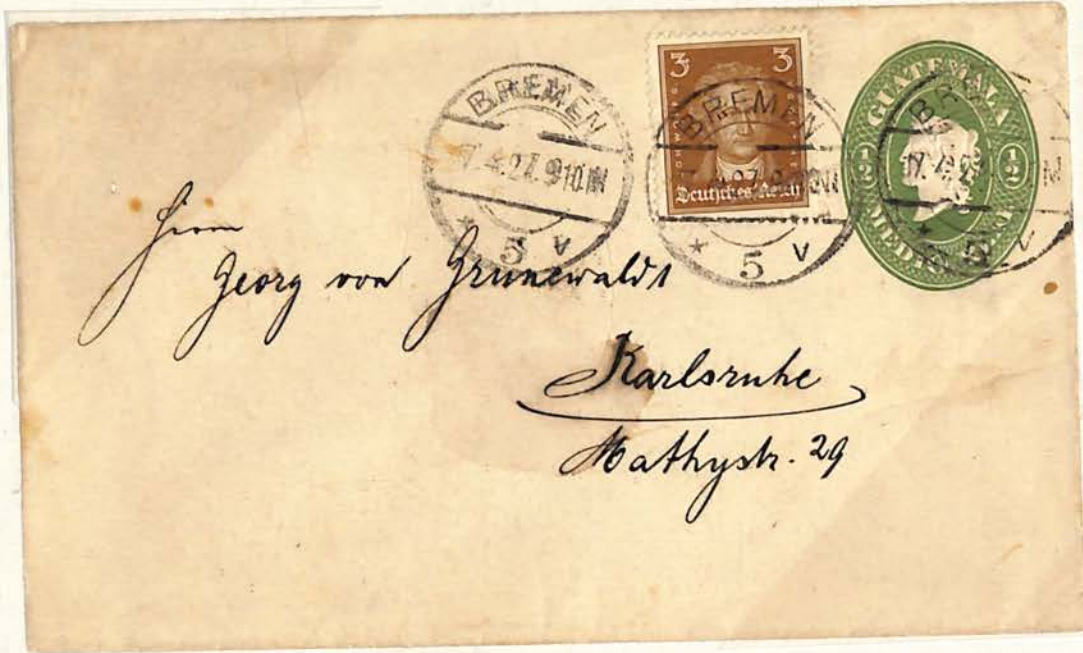 BREMEN
17.4.27. 9-10.N
* 5 v
3 3
Deutsches Reich
BREMEN
* 5 v
GUATEMALA
½ ½
MEDIO
17.4.27
5 v
Herrn
Georg von Grunewaldt
Karlsruhe
Mathystr. 29